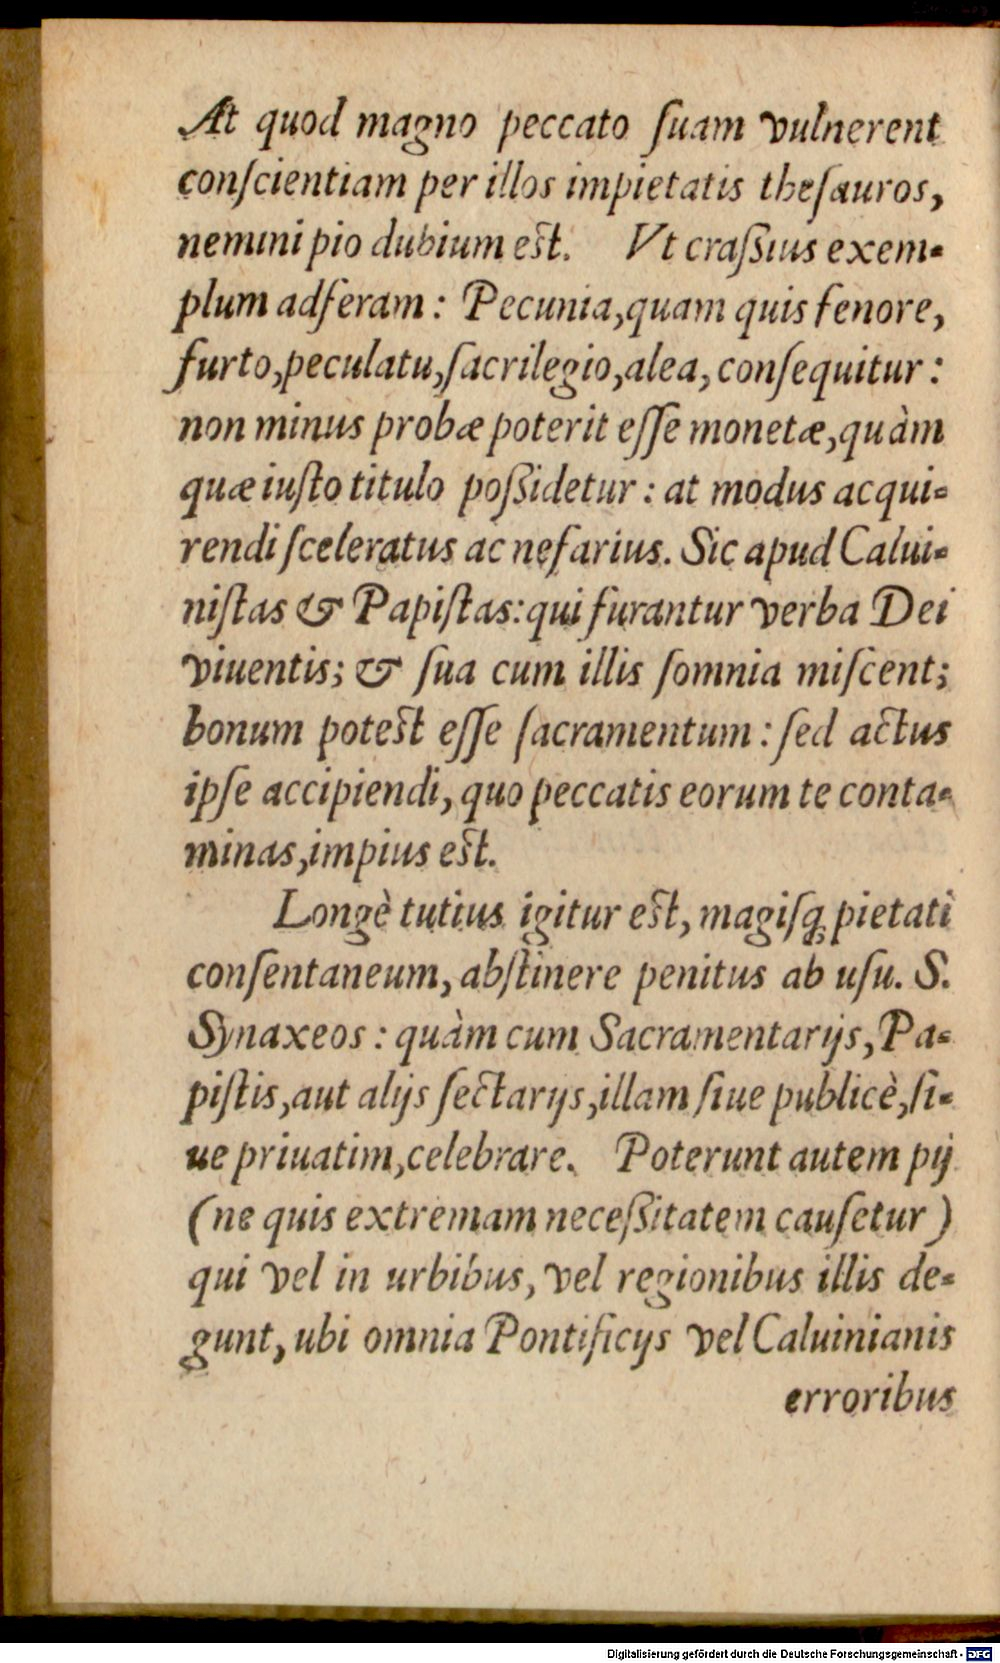 At quod magno peccato ſuam vulnerent
conſcientiam per illos impietatis theſauros,
nemini pio dubium est. Vt craſsius exem-
plum adferam: Pecunia, quam quis fenore,
furto, peculatu, ſacrilegio, alea, conſequitur:
non minus probæ poterit eſſe monetæ, quàm
quæ iuſto titulo poſsidetur: at modus acqui-
rendi ſceleratus ac nefarius. Sic apud Calui-
niſtas & Papiſtas: qui furantur verba Dei
viuentis; & ſua cum illis ſomnia miſcent;
bonum potest eſſe ſacramentum: ſed actus
ipſe accipiendi, quo peccatis eorum te conta-
minas, impius est.
Longè tutius igitur est, magiſq́; pietati
conſentaneum, abſtinere penitus ab uſu. S.
Synaxeos: quàm cum Sacramentarijs, Pa-
piſtis, aut alijs ſectarijs, illam ſiue publicè, ſi-
ue priuatim, celebrare. Poterunt autem pij
(ne quis extremam neceſsitatem cauſetur)
qui vel in urbibus, vel regionibus illis de-
gunt, ubi omnia Pontificijs vel Caluinianis
erroribus
Digitalisierung gefördert durch die Deutsche Forschungsgemeinschaft - DFG